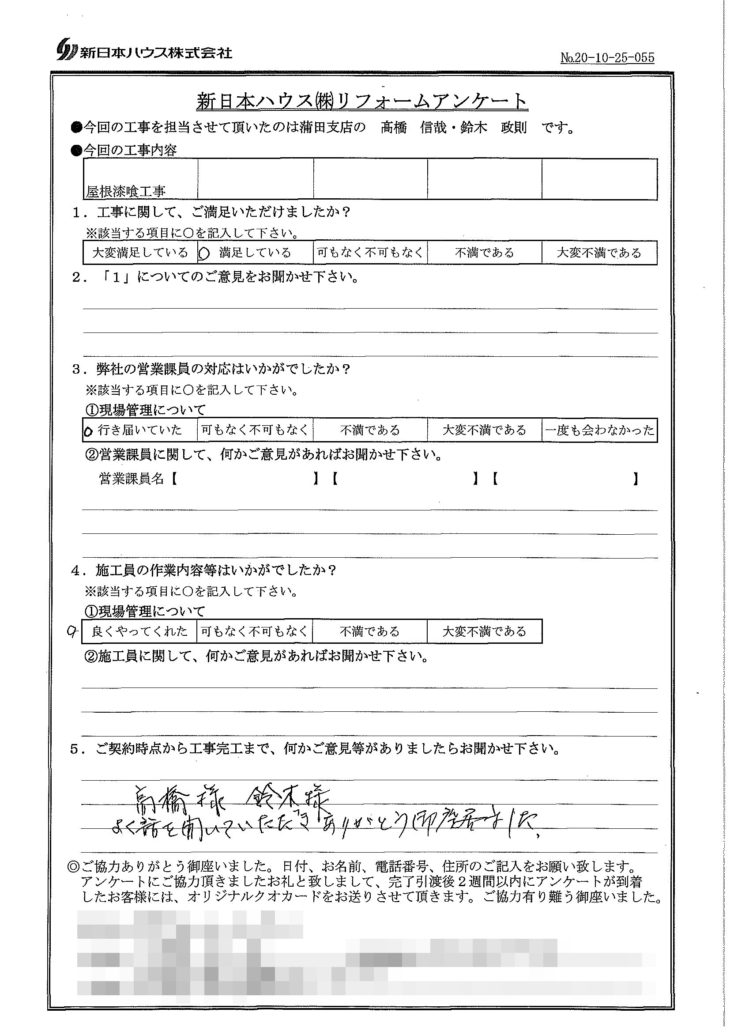 新日本ハウス株式会社
№20-10-25-055
新日本ハウス㈱リフォームアンケート
●今回の工事を担当させて頂いたのは蒲田支店の 高橋 信哉・鈴木 政則 です。
●今回の工事内容
屋根漆喰工事
1．工事に関して、ご満足いただけましたか？
※該当する項目に○を記入して下さい。
大変満足している ○ 満足している 可もなく不可もなく 不満である 大変不満である
2．「1」についてのご意見をお聞かせ下さい。
3．弊社の営業課員の対応はいかがでしたか？
※該当する項目に○を記入して下さい。
①現場管理について
○ 行き届いていた 可もなく不可もなく 不満である 大変不満である 一度も会わなかった
②営業課員に関して、何かご意見があればお聞かせ下さい。
営業課員名【 】【 】【 】
4．施工員の作業内容等はいかがでしたか？
※該当する項目に○を記入して下さい。
①現場管理について
○ 良くやってくれた 可もなく不可もなく 不満である 大変不満である
②施工員に関して、何かご意見があればお聞かせ下さい。
5．ご契約時点から工事完工まで、何かご意見等がありましたらお聞かせ下さい。
高橋様 鈴木様
よく話を聞いていただきありがとう御座居ました、
◎ご協力ありがとう御座いました。日付、お名前、電話番号、住所のご記入をお願い致します。
アンケートにご協力頂きましたお礼と致しまして、完了引渡後2週間以内にアンケートが到着
したお客様には、オリジナルクオカードをお送りさせて頂きます。ご協力有り難う御座いました。